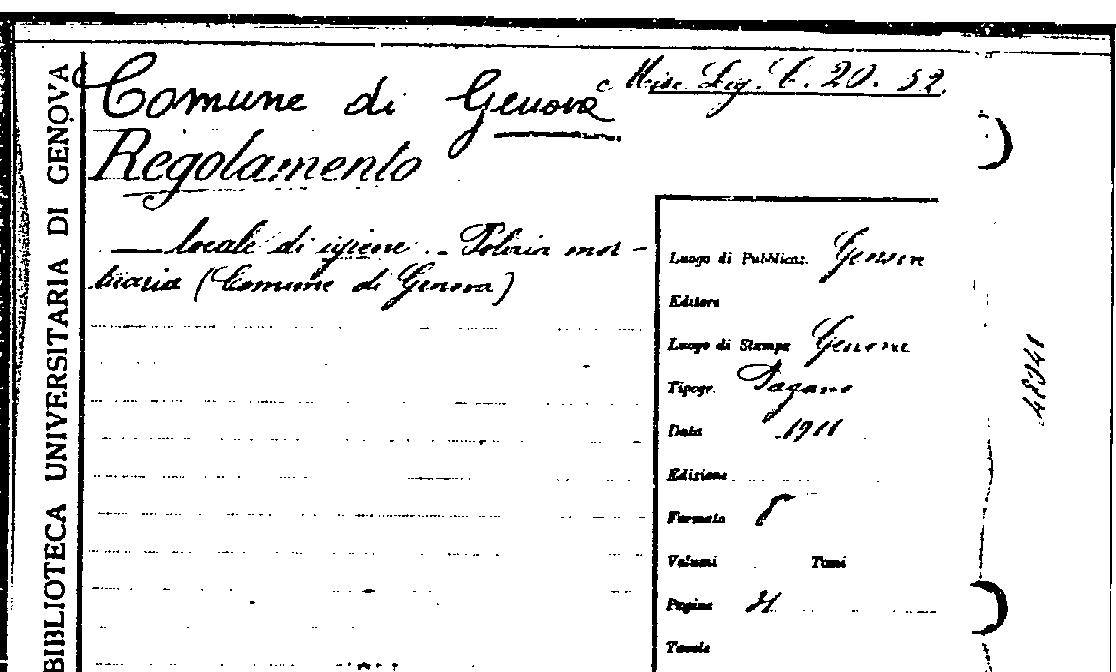 BIBLIOTECA UNIVERSITARIA DI GENOVA
Comune di Genova
Misc. Lig. C. 20. 52.
Regolamento
locale di igiene - Polizia mor-
tuaria (Comune di Genova)
Luogo di Pubblicaz. Genova
Editore
Luogo di Stampa Genova
Tipogr. Pagano
Data 1911
Edizione
Formato 8
Volumi Tomi
Pagine
Tavole